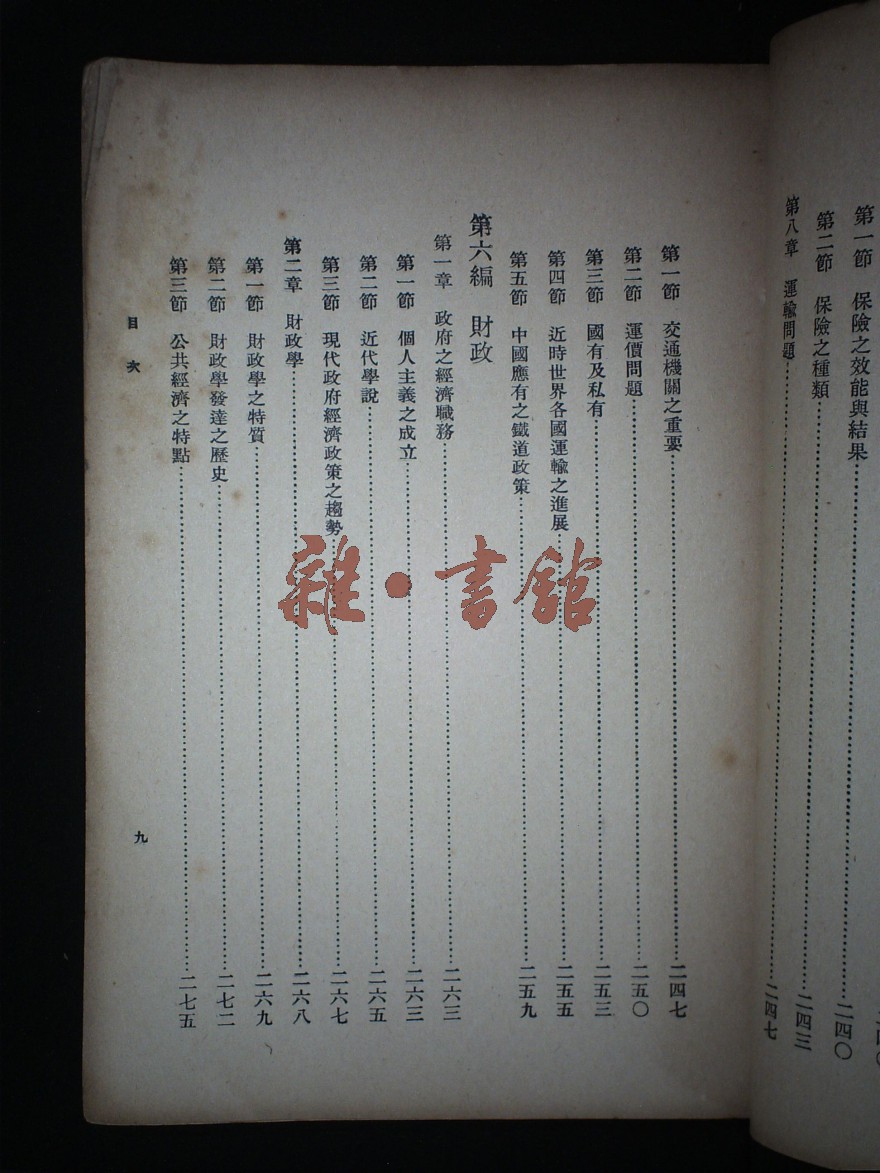 第一節　保險之效能與結果……二四〇
第二節　保險之種類……二四三
第八章　運輸問題……二四七
第一節　交通機關之重要……二四七
第二節　運價問題……二五〇
第三節　國有及私有……二五三
第四節　近時世界各國運輸之進展……二五五
第五節　中國應有之鐵道政策……二五九
第六編　財政
第一章　政府之經濟職務……二六三
第一節　個人主義之成立……二六三
第二節　近代學說……二六五
第三節　現代政府經濟政策之趨勢……二六七
第二章　財政學……二六八
第一節　財政學之特質……二六九
第二節　財政學發達之歷史……二七二
第三節　公共經濟之特點……二七五
目次
九
雜·書館